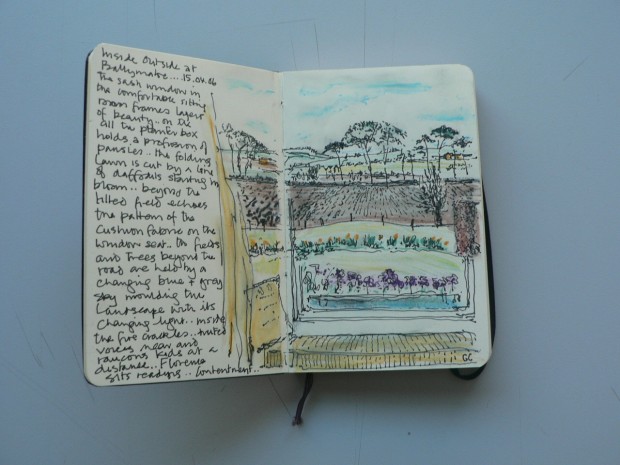 Inside Outside at
Ballymaloe.... 15.04.06
The sash window in
the comfortable sitting
room frames layers
of beauty.. on the
sill the planter box
holds a profusion of
pansies.. the folding
lawn is cut by a line
of daffodils starting to
bloom.. beyond the
tilled field echoes
the pattern of the
cushion fabric on the
window seat.. the fields
and trees beyond the
road are held by a
changing blue + grey
sky moulding the
landscape with its
changing light.. inside
the fire crackles.. muted
voices near and
raucous kids at a
distance.. Florence
sits reading.. contentment..
GC